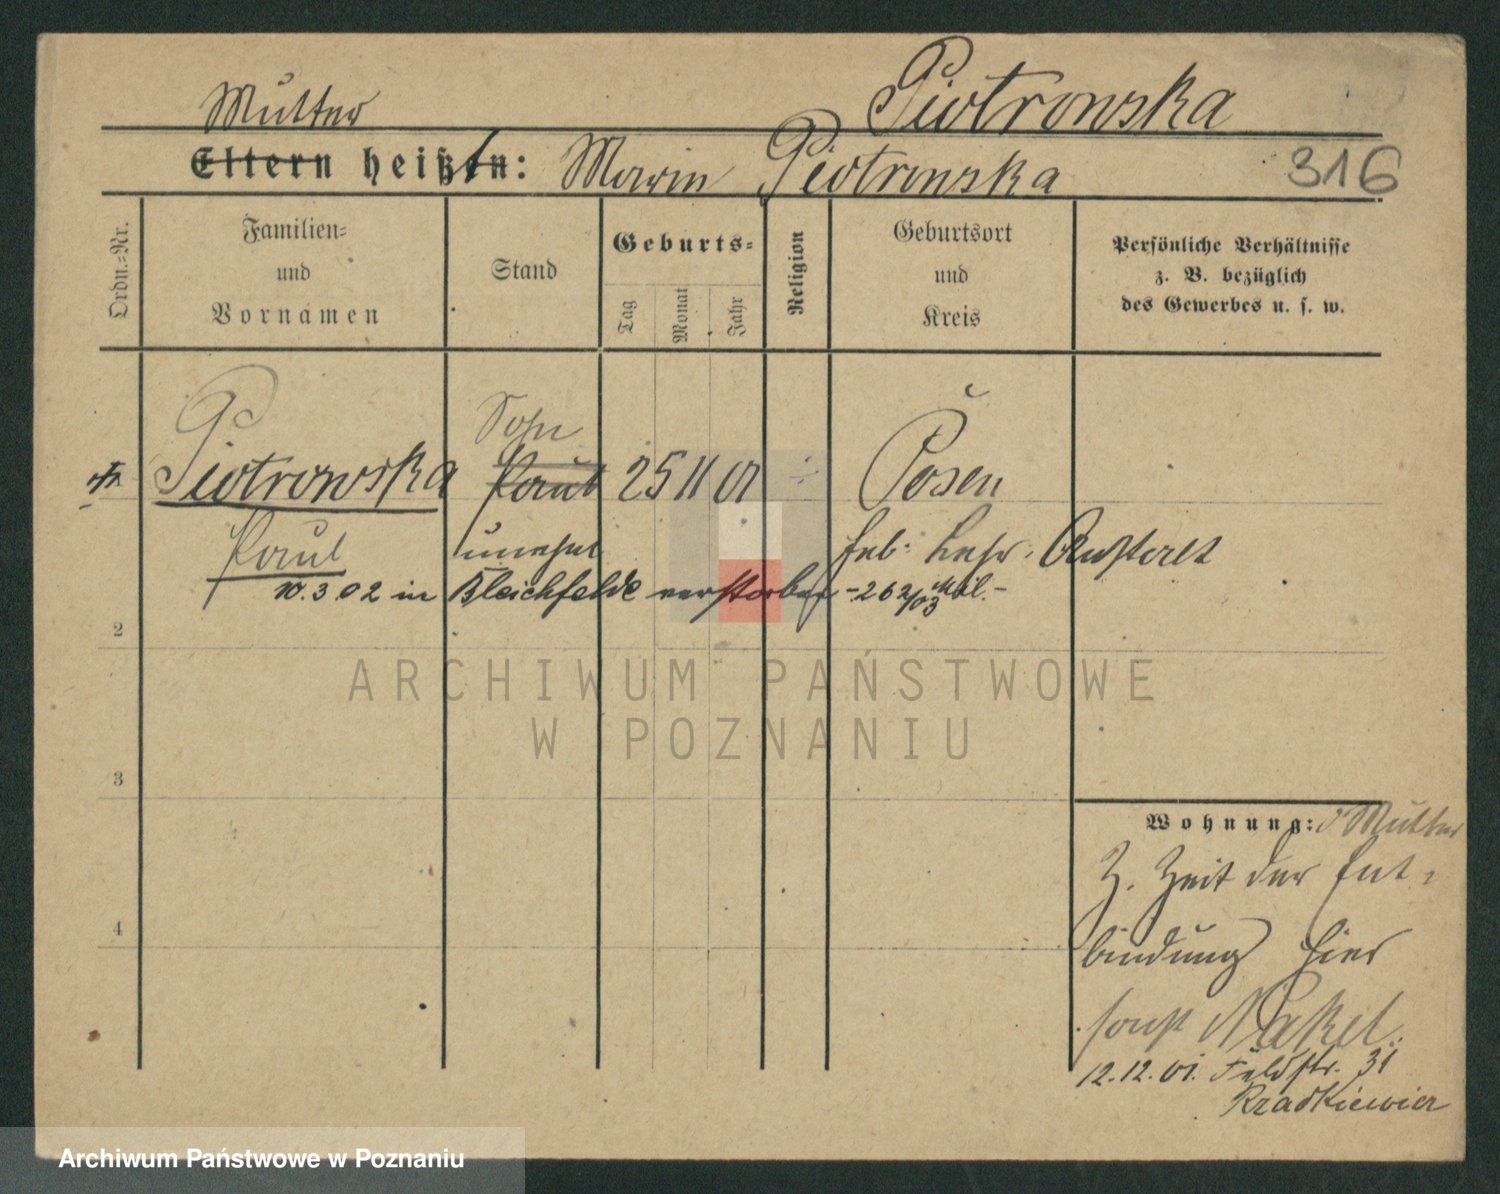 Piotrowska
Mutter
Eltern heißen: Marie Piotrowska
316
Ordn.-Nr.
Familien-
und
Vornamen
Stand
Geburts-
Tag
Monat
Jahr
Religion
Geburtsort
und
Kreis
Persönliche Verhältnisse
z. B. bezüglich
des Gewerbes u. s. w.
Piotrowska
Paul
Sohn
Paul
unehel
25 11 01
Posen
Heb: Lehr: Anstalt
10.3.02 in Bleichfelde verstorben - 262/03 Mil. -
2
3
4
ARCHIWUM PAŃSTWOWE
W POZNANIU
Wohnung: d Mutter
Z. Zeit der Ent-
bindung hier
sonst Nakel.
12.12.01. Feldstr. 31
Rzadkiewicz
Archiwum Państwowe w Poznaniu